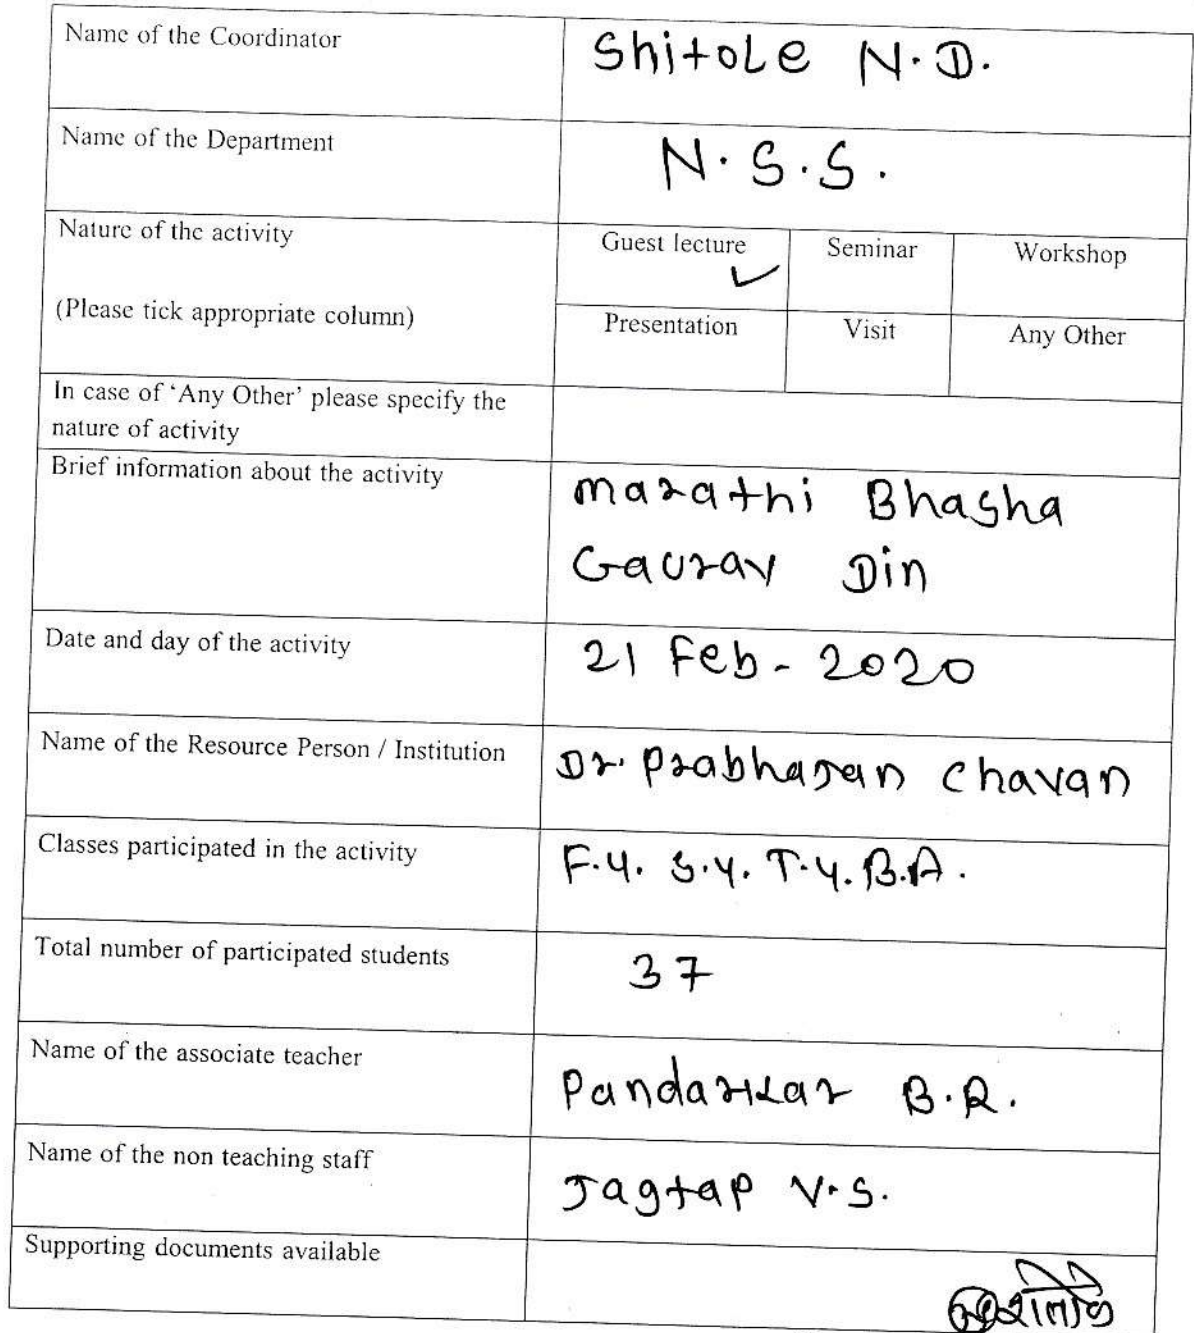 Name of the Coordinator
Shitole N.D.
Name of the Department
N.S.S.
Nature of the activity
(Please tick appropriate column)
Guest lecture ✓ Seminar Workshop
Presentation Visit Any Other
In case of 'Any Other' please specify the
nature of activity
Brief information about the activity
Marathi Bhasha
Gaurav Din
Date and day of the activity
21 Feb - 2020
Name of the Resource Person / Institution
Dr. Prabharan Chavan
Classes participated in the activity
F.Y. S.Y. T.Y. B.A.
Total number of participated students
37
Name of the associate teacher
Pandarkar B.R.
Name of the non teaching staff
Jagtap V.S.
Supporting documents available